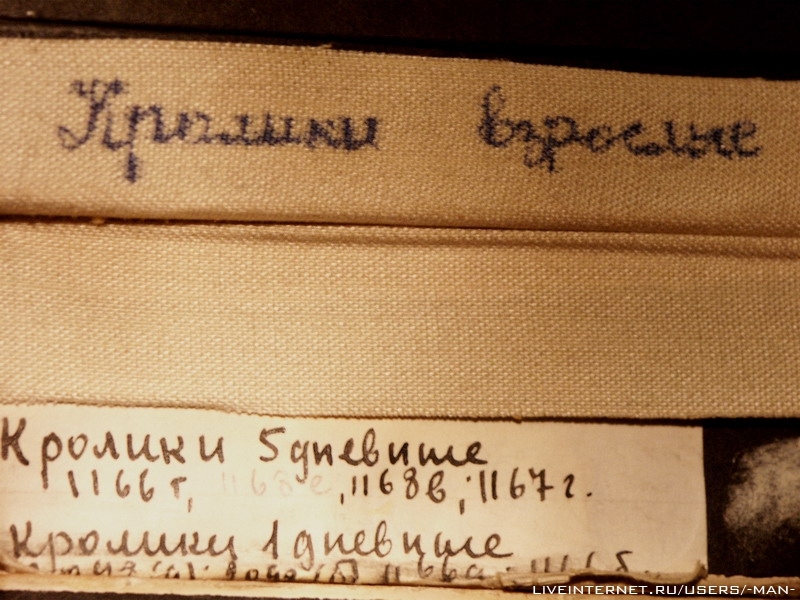 Кролики взрослые
Кролики 5 дневные
1166г, 1168е, 1168в; 1167г.
Кролики 1 дневные
LIVEINTERNET.RU/USERS/-MAN-